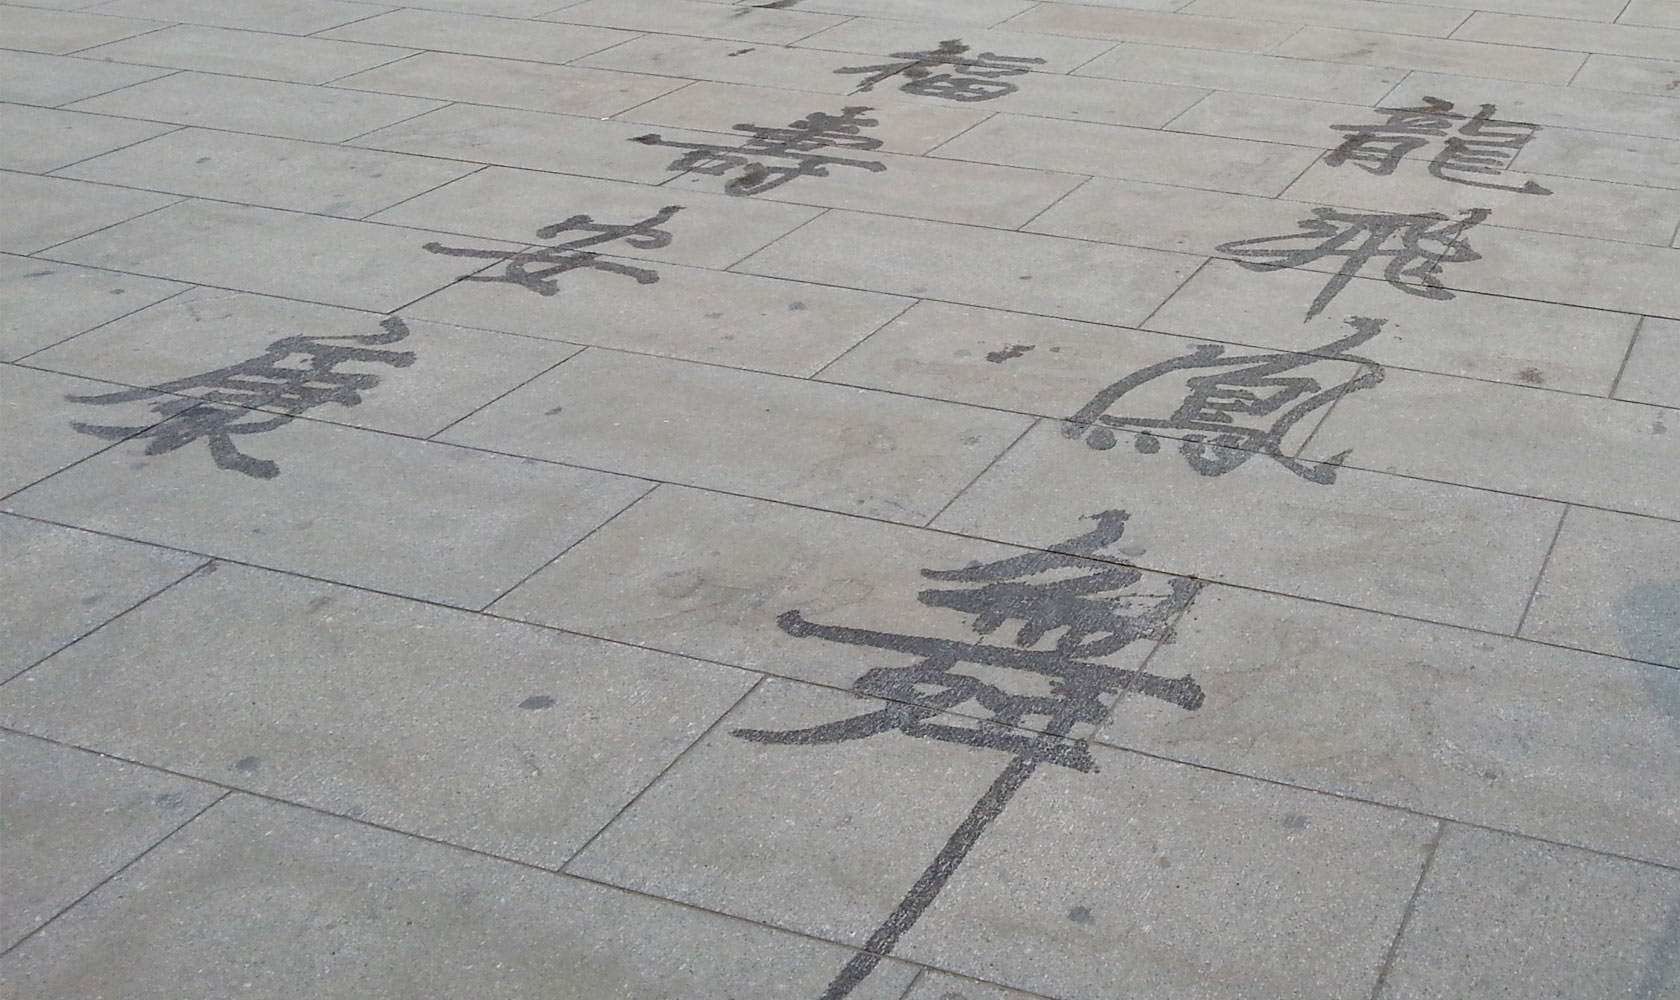 龍飛鳳舞
福壽安康